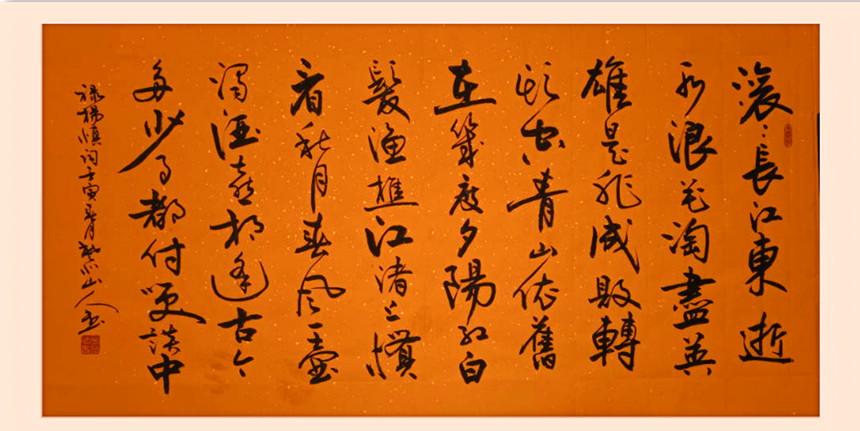 滚〻長江東逝
水浪花淘盡英
雄是非成敗轉
頭空青山依舊
在幾度夕陽紅白
髮漁樵江渚上慣
看秋月春風一壺
濁酒喜相逢古今
多少事都付笑談中
録楊慎词壬寅春月山人書